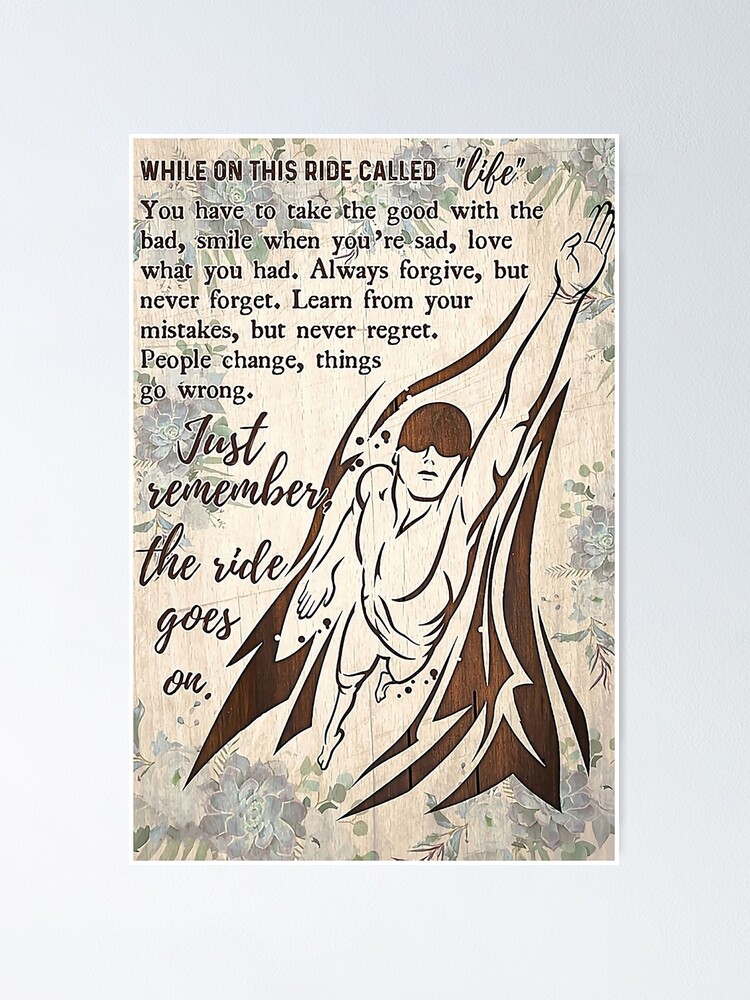 WHILE ON THIS RIDE CALLED "life"
You have to take the good with the
bad, smile when you're sad, love
what you had. Always forgive, but
never forget. Learn from your
mistakes, but never regret.
People change, things
go wrong.
Just
remember,
the ride
goes
on.